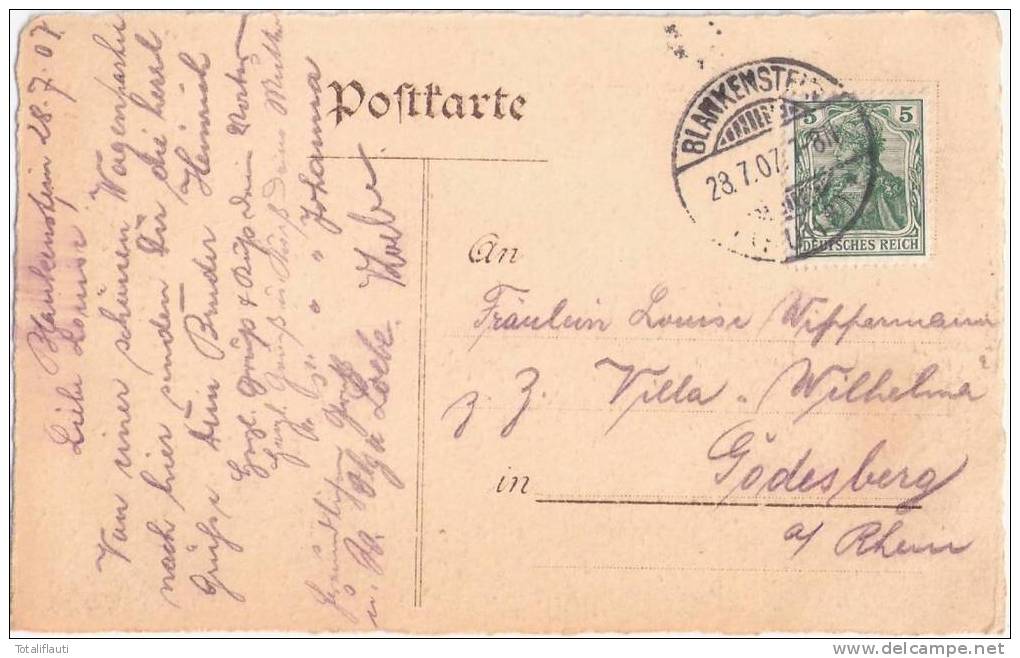 Blankenstein 28.7.07
Liebe Louise,
Von einer schönen Wagenpartie
nach hier senden Dir die herzl
Grüsse Dein Bruder Heinrich
Herzl. Gruß & Kuß Dein
Herzl. Gruß u. Kuß Deine Mutter
" " " Johanna
Gruß
u. Olga Loebe
Postkarte
BLANKENSTEIN
28.7.07. 7-8N.
5 5
DEUTSCHES REICH
An
Fräulein Louise Wippermann
z. Z. Villa „ Wilhelma
in Godesberg
a/ Rhein
Totaliflauti
delcampe.net